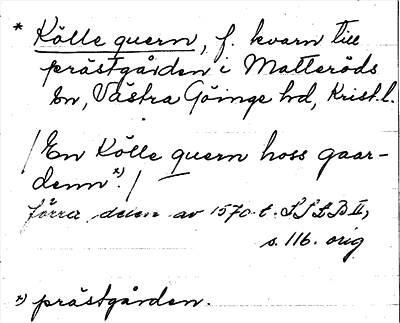 * Kölle quern, f. kvarn till
prästgården i Matteröds
sn, Västra Göinge hd, Krist. l.
/En Kölle quern hoss gaar-
denn x)./
förra delen av 1570-t. LSLB II,
s. 116. orig
x) prästgården.